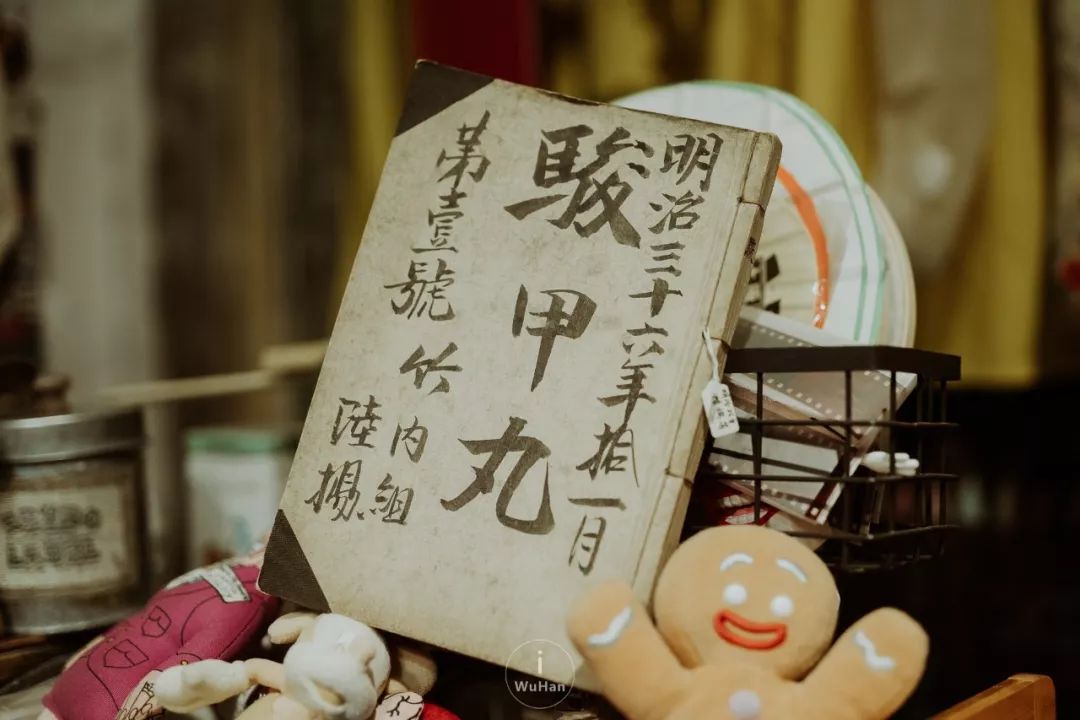 明治三十六年拾一月
駿甲丸
第壹號
竹内組
陸揚
i
WuHan